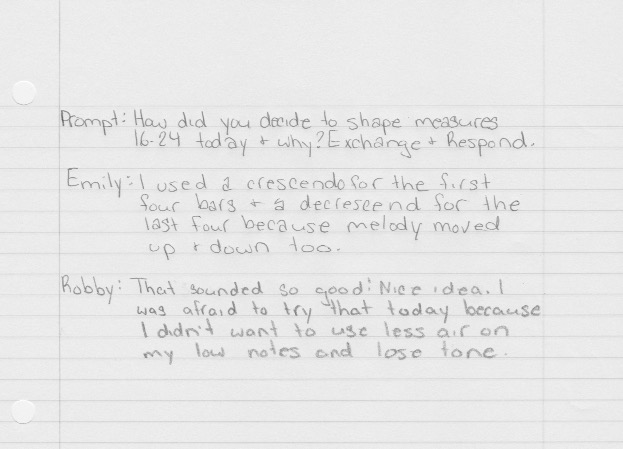 Prompt: How did you decide to shape measures
16-24 today + why? Exchange + Respond.
Emily: I used a crescendo for the first
four bars + a decrescend for the
last four because melody moved
up + down too.
Robby: That sounded so good! Nice idea. I
was afraid to try that today because
I didn't want to use less air on
my low notes and lose tone.